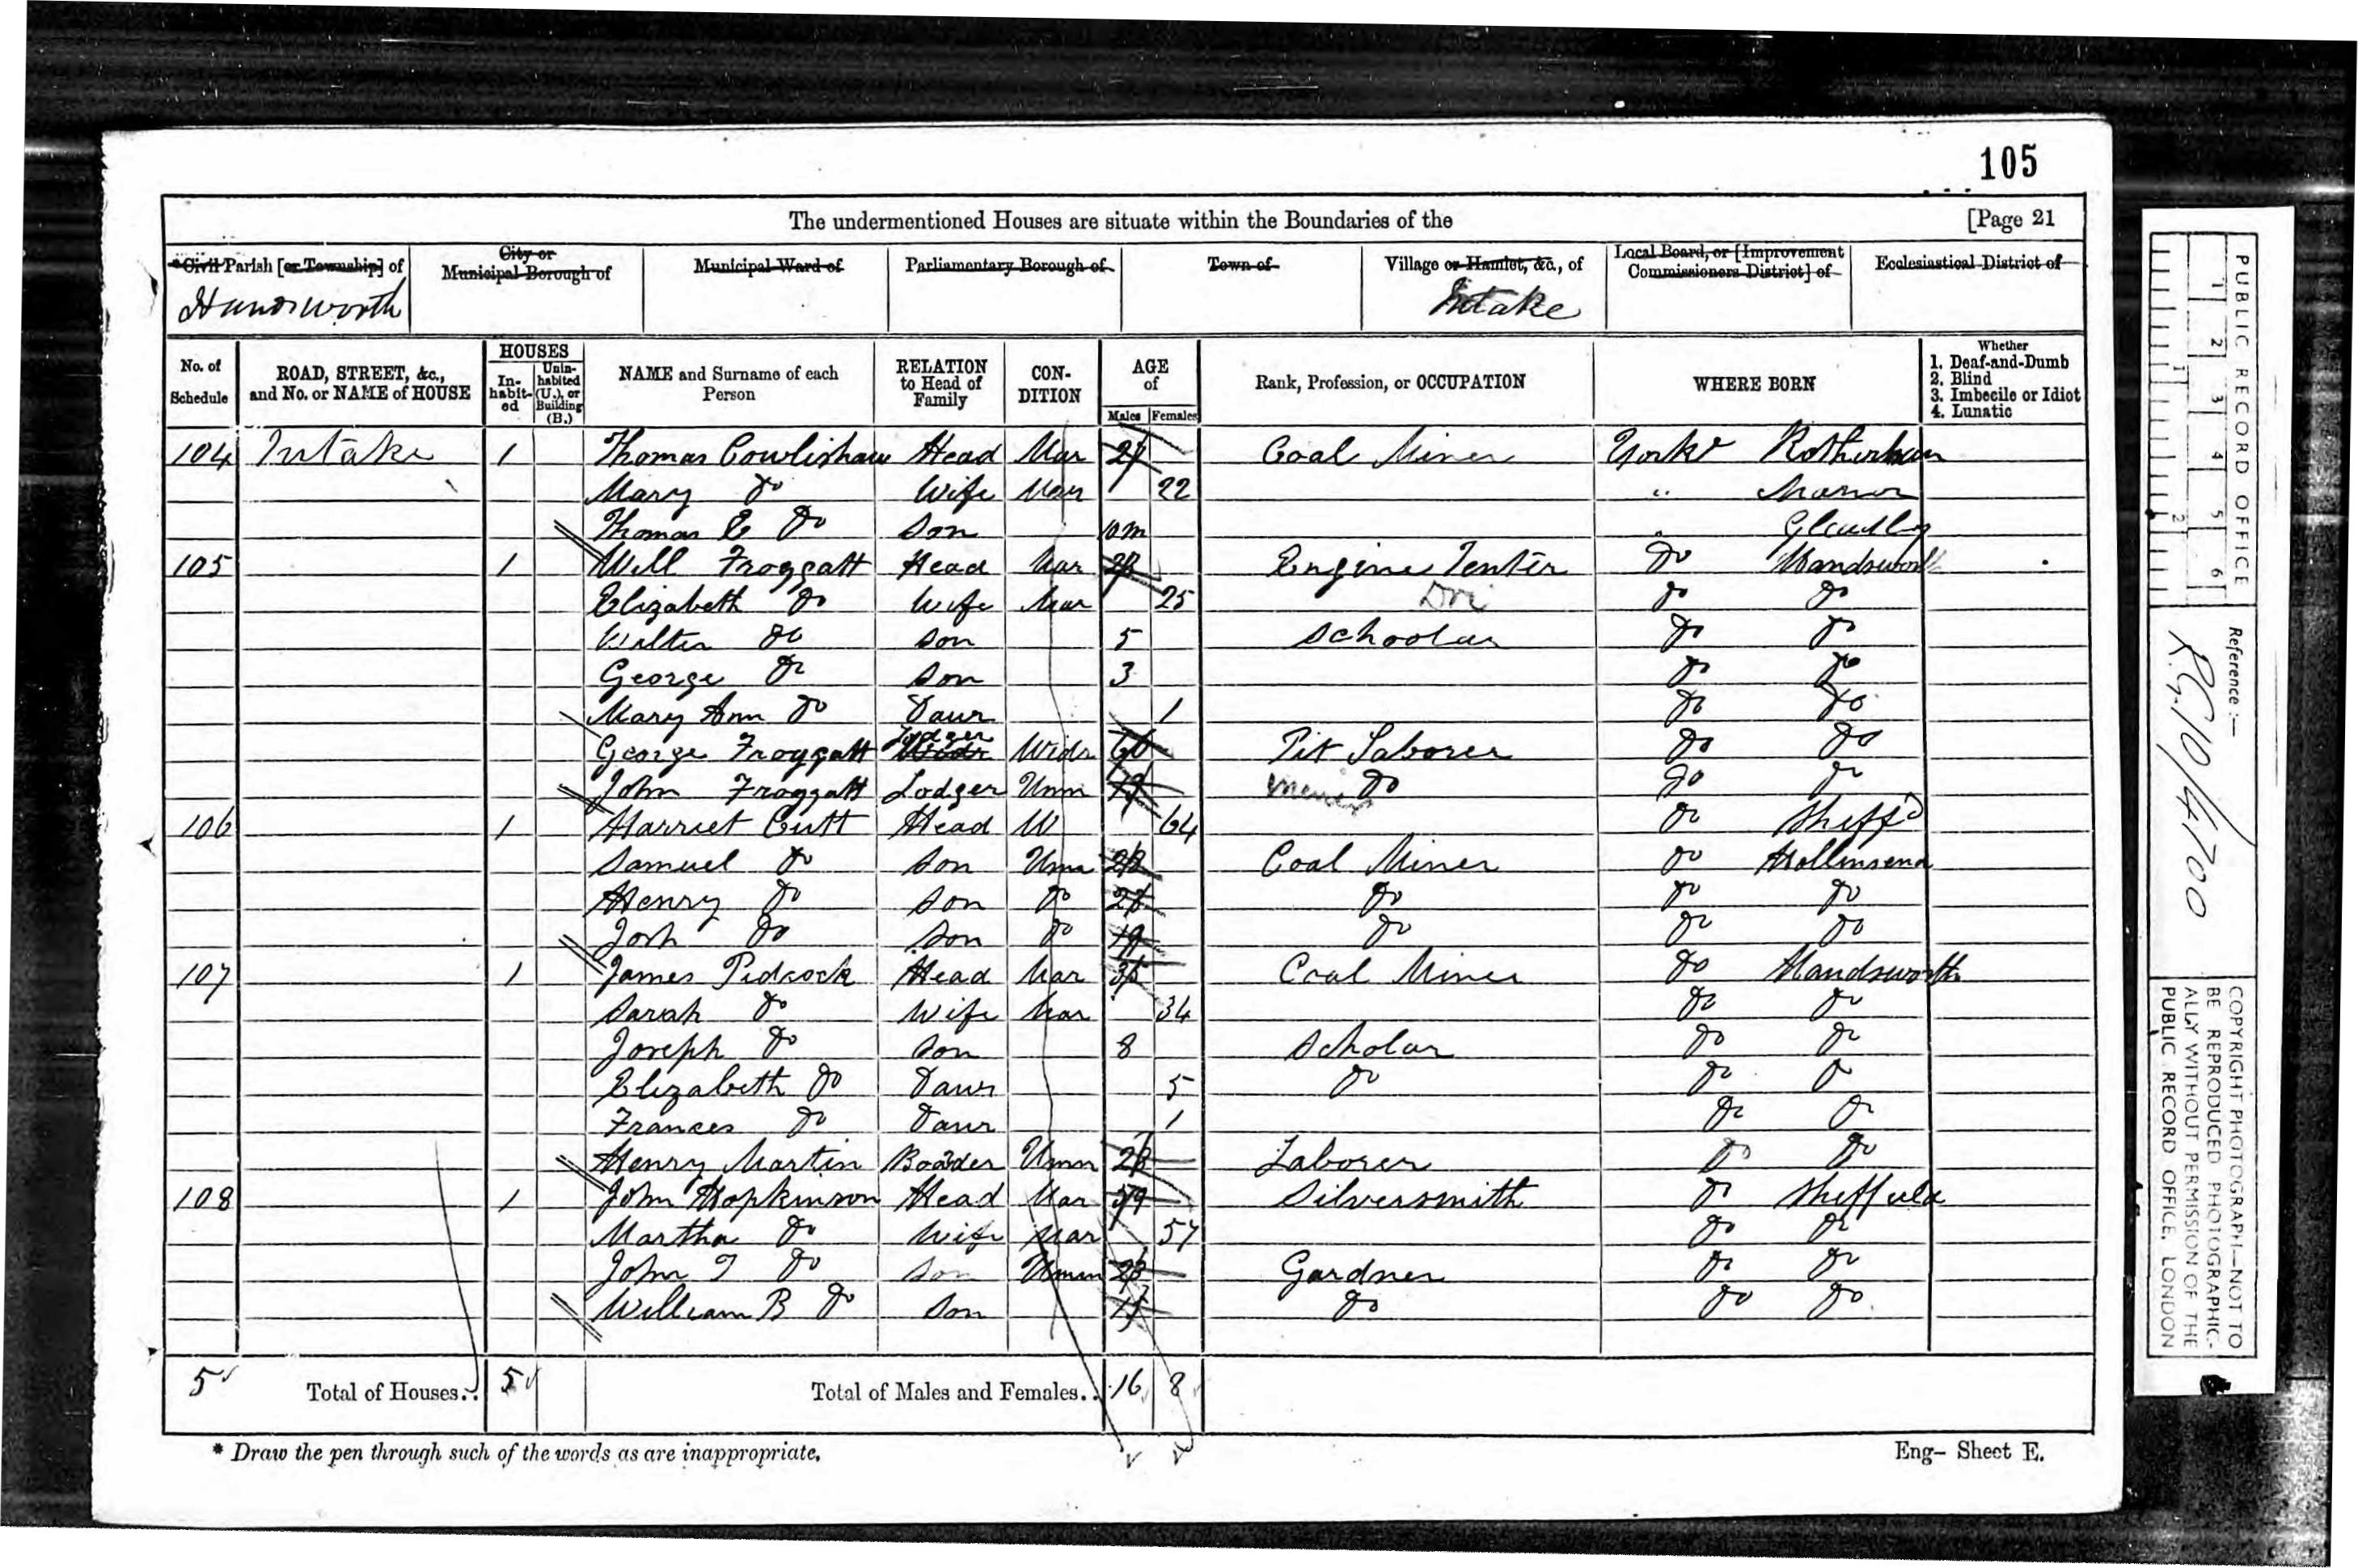 105
The undermentioned Houses are situate within the Boundaries of the [Page 21
*Civil Parish [or Township] of City or Municipal Borough of Municipal Ward of Parliamentary Borough of Town of Village or Hamlet, &c., of Local Board, or [Improvement Commissioners District] of Ecclesiastical District of
Handsworth Intake
No. of Schedule ROAD, STREET, &c., and No. or NAME of HOUSE HOUSES Inhabited Uninhabited (U.), or Building (B.) NAME and Surname of each Person RELATION to Head of Family CONDITION AGE of Males Females Rank, Profession, or OCCUPATION WHERE BORN Whether 1. Deaf-and-Dumb 2. Blind 3. Imbecile or Idiot 4. Lunatic
104 Intake 1 Thomas Cowlishaw Head Mar Coal Miner Yorks Rotherham
Mary Do Wife Mar 22 " Manor
Thomas E Do Son 10m
105 1 Will Froggatt Head Mar Engine Tenter Do Handsworth
Elizabeth Do Wife Mar 25 Dri Do Do
Walter Do Son 5 Schoolar Do Do
George Do Son 3 Do Do
Mary Ann Do Daur 1 Do Do
George Froggatt Lodger Widr 60 Pit Laborer Do Do
John Froggatt Lodger Unm Do Do Do
106 1 Harriet Cutt Head W 64 Do Sheffd
Samuel Do Son Unm Coal Miner Do Hollinsend
Henry Do Son Do Do Do Do
Josh Do Son Do 19 Do Do Do
107 1 James Pidcock Head Mar Coal Miner Do Handsworth
Sarah Do Wife Mar 34 Do Do
Joseph Do Son 8 Scholar Do Do
Elizabeth Do Daur 5 Do Do Do
Frances Do Daur 1 Do Do
Henry Martin Boarder Unm Laborer Do Do
108 1 John Hopkinson Head Mar 59 Silversmith Do Sheffield
Martha Do Wife Mar 57 Do Do
John T Do Son Unm Gardner Do Do
William B Do Son Do Do Do
5 Total of Houses.. 5 Total of Males and Females.. 16 8
* Draw the pen through such of the words as are inappropriate. Eng- Sheet E.
PUBLIC RECORD OFFICE
1 2 3 4 5 6
1 2
Reference :-
R.G. 10/4700
COPYRIGHT PHOTOGRAPH-NOT TO
BE REPRODUCED PHOTOGRAPHIC-
ALLY WITHOUT PERMISSION OF THE
PUBLIC RECORD OFFICE, LONDON